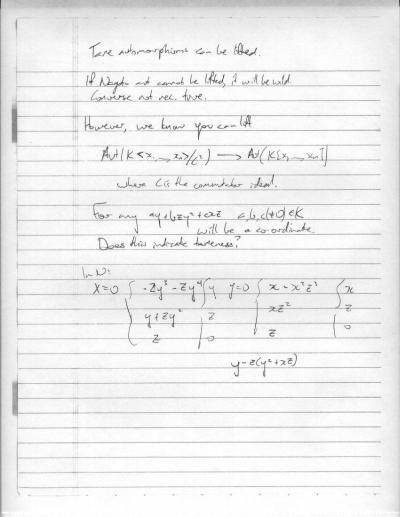 Tame automorphisms can be lifted.
If Nagata aut cannot be lifted, it will be wild.
Converse not nec. true.
However, we know you can lift
Aut(K<x₁, ..., xₙ>/C²) → Aut(K[x₁, ..., xₙ])
where C is the commutator ideal.
For any ay+bzy²+cxz a, b, c(≠0)∈K
will be a co-ordinate.
Does this indicate tameness?
In N:
x=0 { -2y³ - zy⁴ { y y=0 { x - x²z³ { x
y+zy² z xz² z
z 0 z 0
y-z(y²+xz)